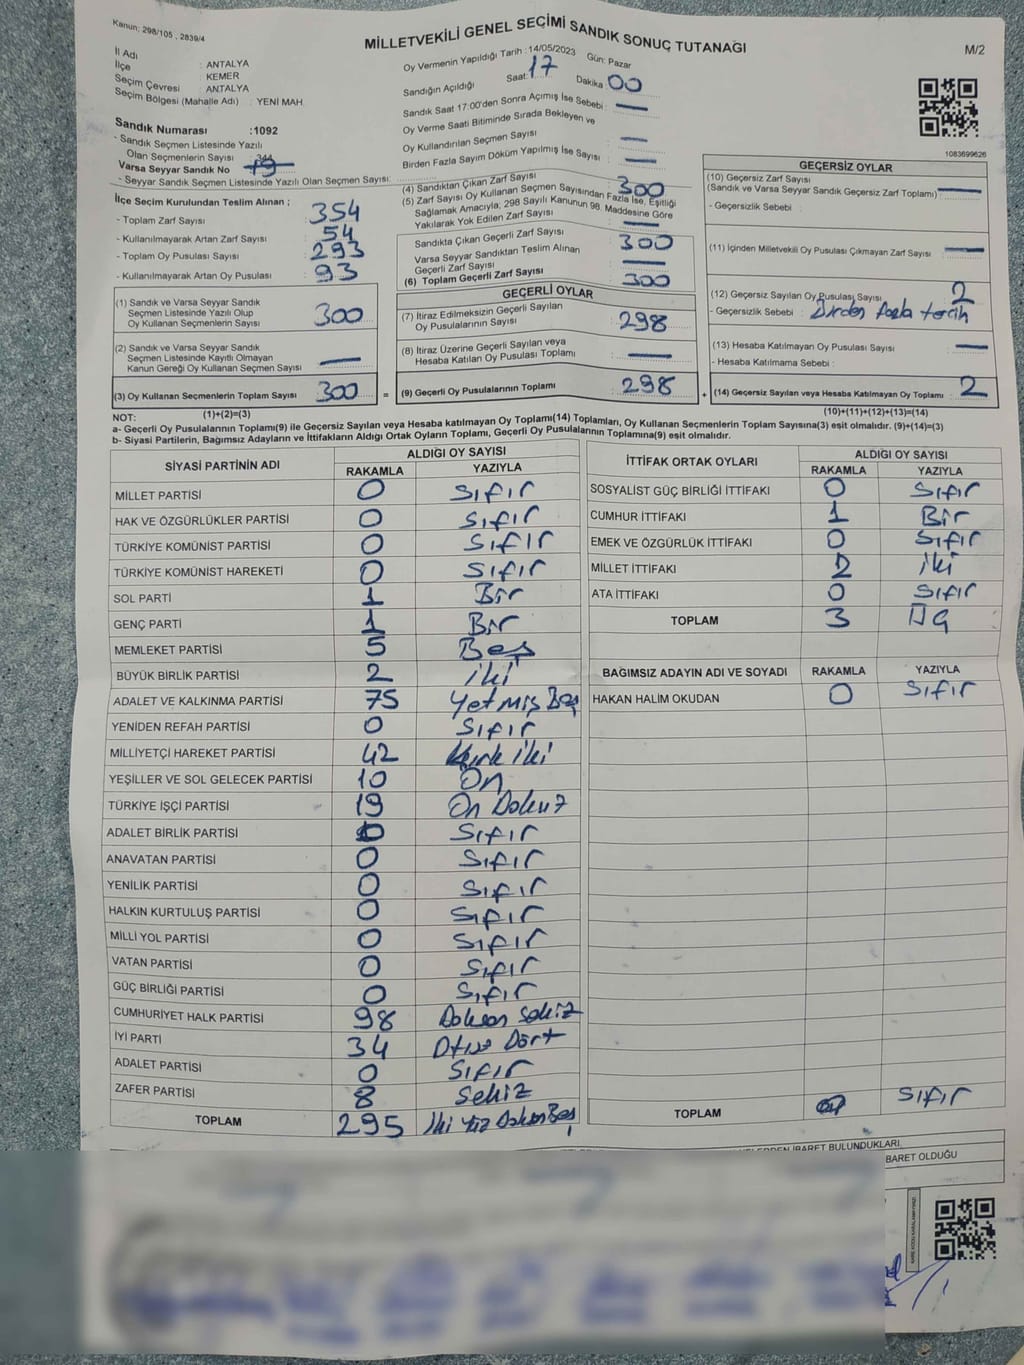 Kanun: 298/105 , 2839/4
MİLLETVEKİLİ GENEL SEÇİMİ SANDIK SONUÇ TUTANAĞI
M/2
İl Adı : ANTALYA
İlçe : KEMER
Seçim Çevresi : ANTALYA
Seçim Bölgesi (Mahalle Adı) : YENİ MAH.
Sandık Numarası :1092
- Sandık Seçmen Listesinde Yazılı
Olan Seçmenlerin Sayısı : 344
Varsa Seyyar Sandık No
- Seyyar Sandık Seçmen Listesinde Yazılı Olan Seçmen Sayısı:
Oy Vermenin Yapıldığı Tarih : 14/05/2023 Gün: Pazar
Sandığın Açıldığı Saat: 17 Dakika 00
Sandık Saat 17:00'den Sonra Açımış İse Sebebi : —
Oy Verme Saati Bitiminde Sırada Bekleyen ve
Oy Kullandırılan Seçmen Sayısı —
Birden Fazla Sayım Döküm Yapılmış İse Sayısı —
1083699626
İlçe Seçim Kurulundan Teslim Alınan ;
- Toplam Zarf Sayısı : 354
- Kullanılmayarak Artan Zarf Sayısı : 54
- Toplam Oy Pusulası Sayısı : 293
- Kullanılmayarak Artan Oy Pusulası : 93
(1) Sandık ve Varsa Seyyar Sandık
Seçmen Listesinde Yazılı Olup
Oy Kullanan Seçmenlerin Sayısı : 300
(2) Sandık ve Varsa Seyyar Sandık
Seçmen Listesinde Kayıtlı Olmayan
Kanun Gereği Oy Kullanan Seçmen Sayısı : —
(3) Oy Kullanan Seçmenlerin Toplam Sayısı : 300 =
(1)+(2)=(3)
(4) Sandıktan Çıkan Zarf Sayısı : 300
(5) Zarf Sayısı Oy Kullanan Seçmen Sayısından Fazla İse, Eşitliği
Sağlamak Amacıyla, 298 Sayılı Kanunun 98. Maddesine Göre
Yakılarak Yok Edilen Zarf Sayısı : —
Sandıkta Çıkan Geçerli Zarf Sayısı : 300
Varsa Seyyar Sandıktan Teslim Alınan
Geçerli Zarf Sayısı : —
(6) Toplam Geçerli Zarf Sayısı : 300
GEÇERLİ OYLAR
(7) İtiraz Edilmeksizin Geçerli Sayılan
Oy Pusulalarının Sayısı : 298
(8) İtiraz Üzerine Geçerli Sayılan veya
Hesaba Katılan Oy Pusulası Toplamı : —
(9) Geçerli Oy Pusulalarının Toplamı : 298 +
GEÇERSİZ OYLAR
(10) Geçersiz Zarf Sayısı
(Sandık ve Varsa Seyyar Sandık Geçersiz Zarf Toplamı) —
- Geçersizlik Sebebi :
(11) İçinden Milletvekili Oy Pusulası Çıkmayan Zarf Sayısı : —
(12) Geçersiz Sayılan Oy Pusulası Sayısı : 2
- Geçersizlik Sebebi : Birden fazla tercih
(13) Hesaba Katılmayan Oy Pusulası Sayısı : —
- Hesaba Katılmama Sebebi :
(14) Geçersiz Sayılan veya Hesaba Katılmayan Oy Toplamı : 2
(10)+(11)+(12)+(13)=(14)
NOT:
a- Geçerli Oy Pusulalarının Toplamı(9) ile Geçersiz Sayılan veya Hesaba katılmayan Oy Toplamı(14) Toplamları, Oy Kullanan Seçmenlerin Toplam Sayısına(3) eşit olmalıdır. (9)+(14)=(3)
b- Siyasi Partilerin, Bağımsız Adayların ve İttifakların Aldığı Ortak Oyların Toplamı, Geçerli Oy Pusulalarının Toplamına(9) eşit olmalıdır.
SİYASİ PARTİNİN ADI ALDIĞI OY SAYISI
RAKAMLA YAZIYLA
MİLLET PARTİSİ 0 Sıfır
HAK VE ÖZGÜRLÜKLER PARTİSİ 0 Sıfır
TÜRKİYE KOMÜNİST PARTİSİ 0 Sıfır
TÜRKİYE KOMÜNİST HAREKETİ 0 Sıfır
SOL PARTİ 1 Bir
GENÇ PARTİ 1 Bir
MEMLEKET PARTİSİ 5 Beş
BÜYÜK BİRLİK PARTİSİ 2 iki
ADALET VE KALKINMA PARTİSİ 75 Yetmiş Beş
YENİDEN REFAH PARTİSİ 0 Sıfır
MİLLİYETÇİ HAREKET PARTİSİ 42 Kırk iki
YEŞİLLER VE SOL GELECEK PARTİSİ 10 On
TÜRKİYE İŞÇİ PARTİSİ 19 On Dokuz
ADALET BİRLİK PARTİSİ 0 Sıfır
ANAVATAN PARTİSİ 0 Sıfır
YENİLİK PARTİSİ 0 Sıfır
HALKIN KURTULUŞ PARTİSİ 0 Sıfır
MİLLİ YOL PARTİSİ 0 Sıfır
VATAN PARTİSİ 0 Sıfır
GÜÇ BİRLİĞİ PARTİSİ 0 Sıfır
CUMHURİYET HALK PARTİSİ 98 Doksan Sekiz
İYİ PARTİ 34 Otuz Dört
ADALET PARTİSİ 0 Sıfır
ZAFER PARTİSİ 8 Sekiz
TOPLAM 295 İki Yüz Doksan Beş
İTTİFAK ORTAK OYLARI ALDIĞI OY SAYISI
RAKAMLA YAZIYLA
SOSYALİST GÜÇ BİRLİĞİ İTTİFAKI 0 Sıfır
CUMHUR İTTİFAKI 1 Bir
EMEK VE ÖZGÜRLÜK İTTİFAKI 0 Sıfır
MİLLET İTTİFAKI 2 iki
ATA İTTİFAKI 0 Sıfır
TOPLAM 3 Üç
BAĞIMSIZ ADAYIN ADI VE SOYADI RAKAMLA YAZIYLA
HAKAN HALİM OKUDAN 0 Sıfır
TOPLAM 0 Sıfır
İBARET BULUNDUKLARI
BARET OLDUĞU